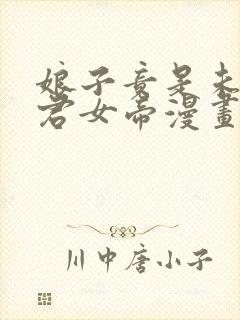 娘子竟是未
君女帝漫畫
川中唐小子